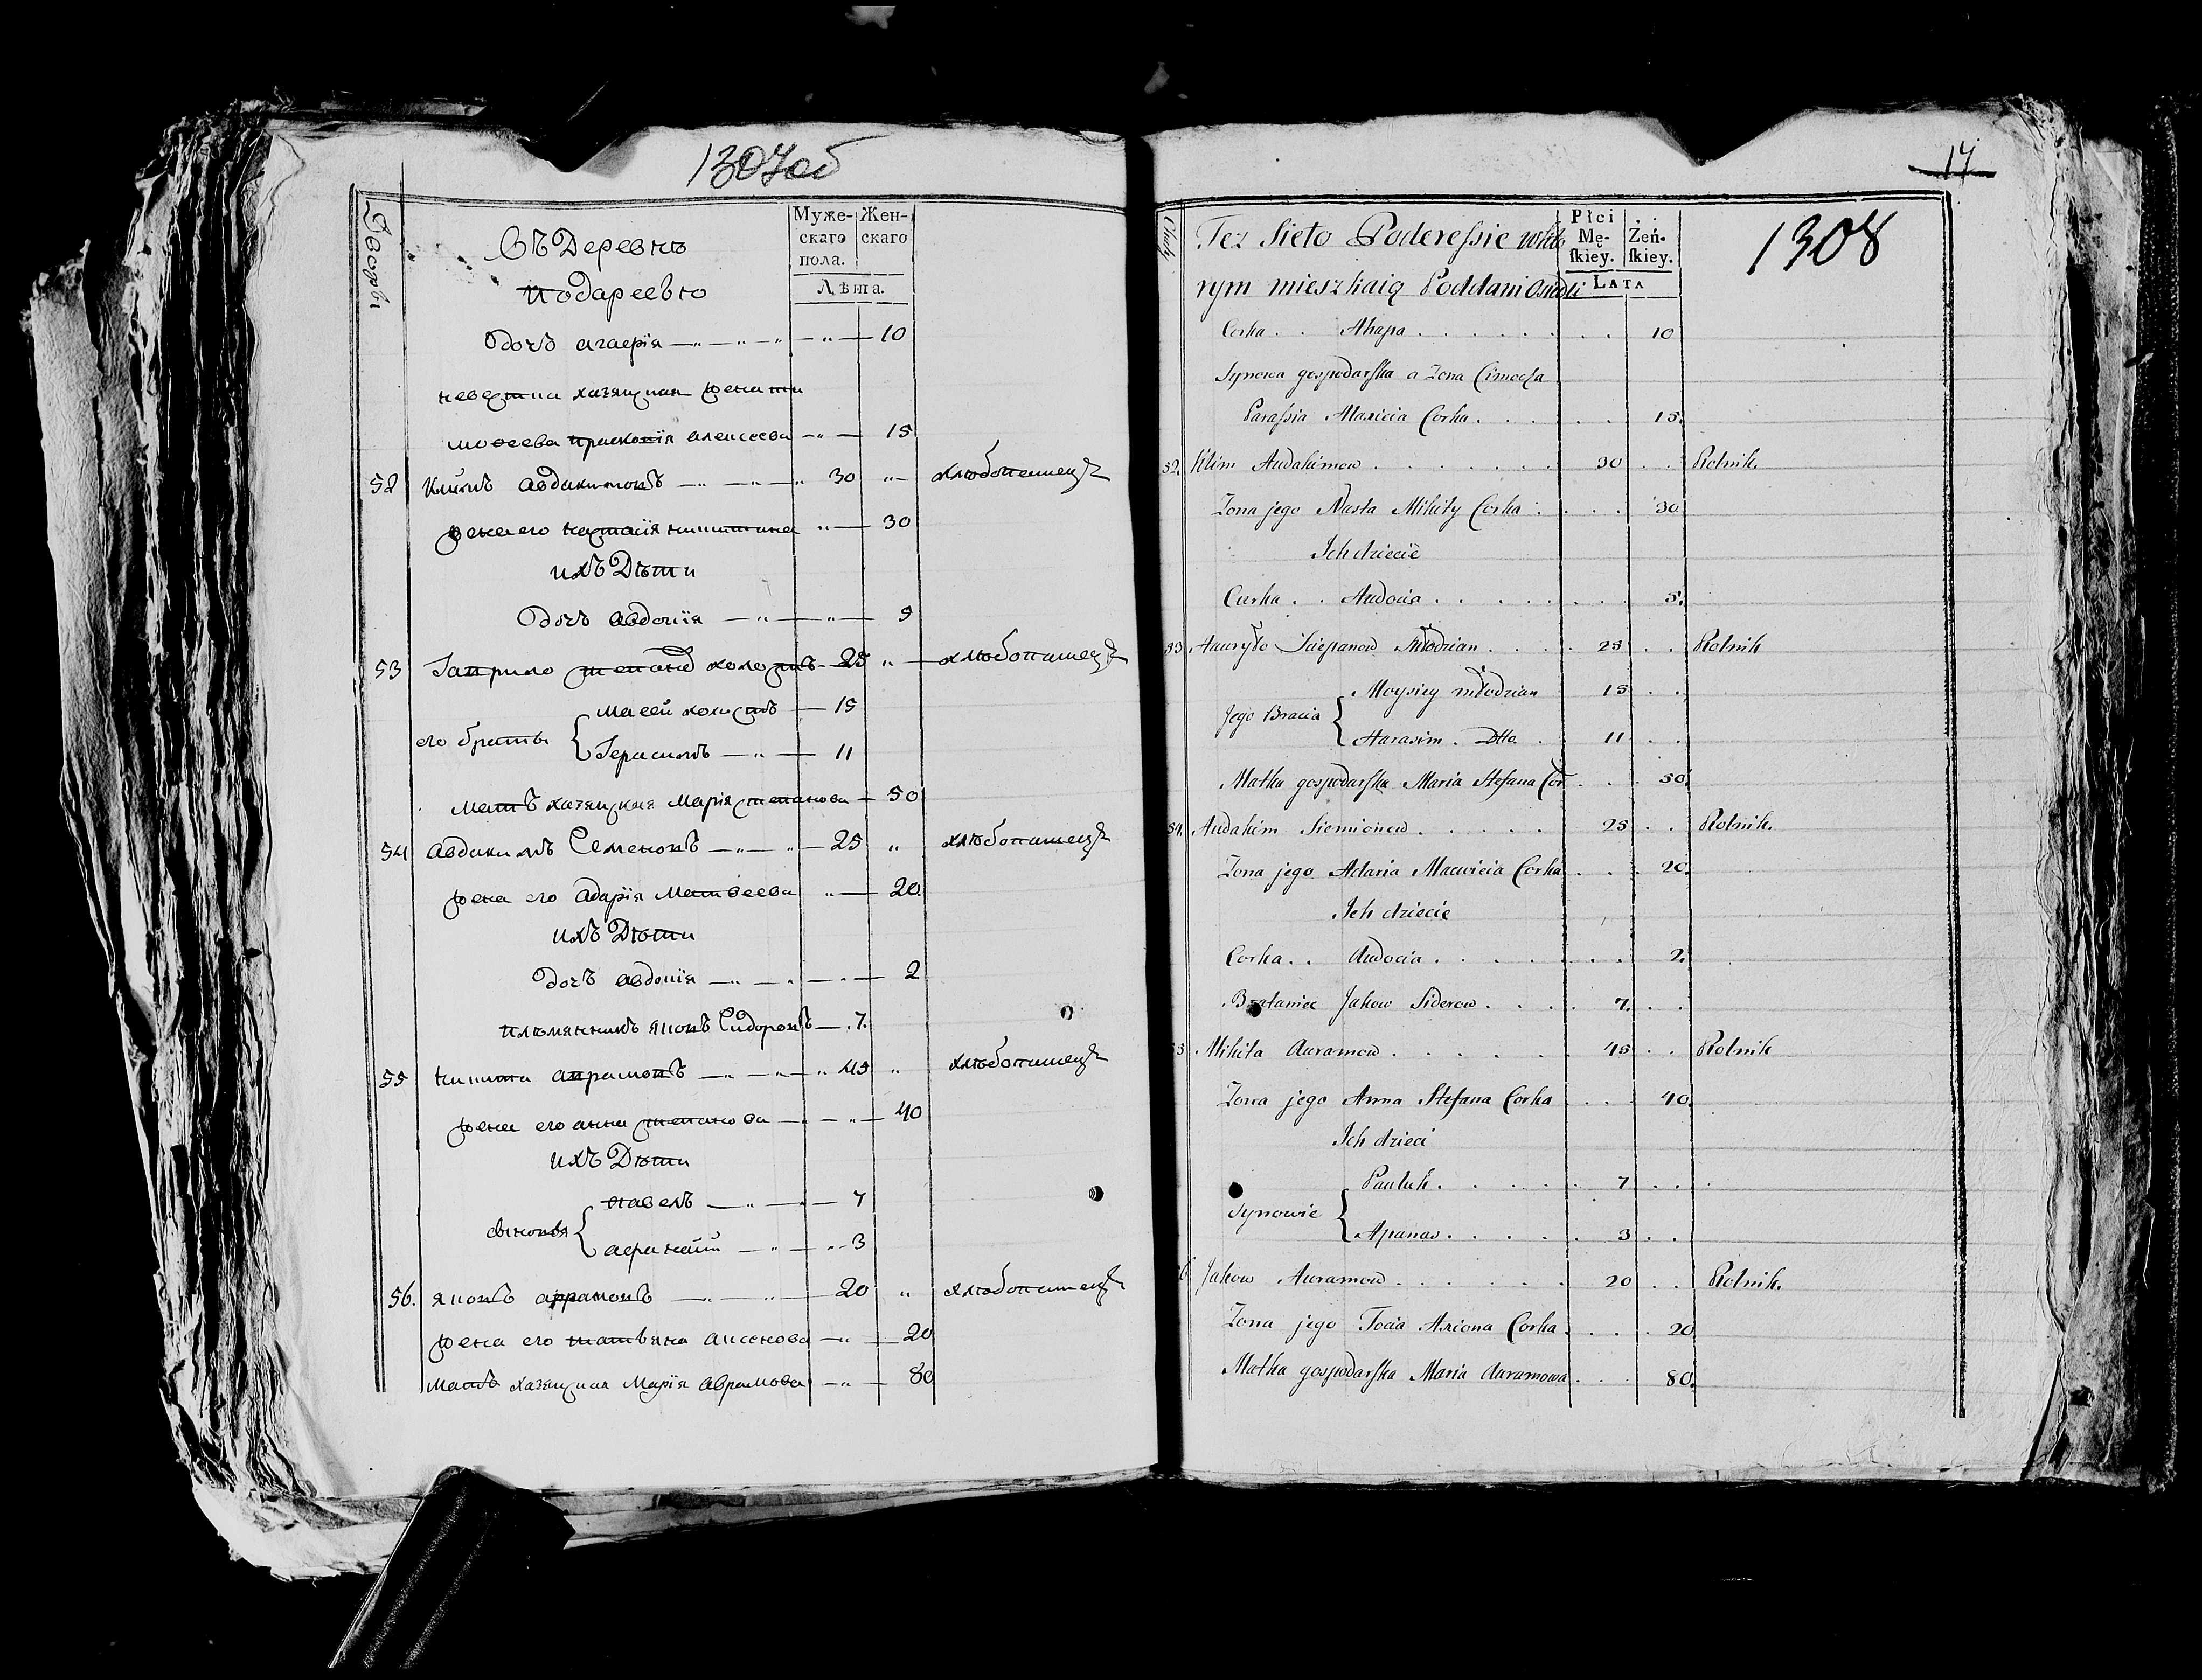 1307об
Дворы
Въ Деревнѣ
Подареевѣ
Муже-
скаго
пола.
Жен-
скаго
Лѣта.
дочь агаѳрія 10
невестка хазяиская жена ти
моѳеева прасковія алексеева 15
52 Клімъ авдакимовъ 30 хлюбопашецъ
жена его настасія никитина 30
ихъ Дѣти
дочь авдотія 5
53 Гаприло степановъ холостъ 25 хлюбопашецъ
его браты
масей холостъ 15
Герасимъ 11
мать хазяиская Марія степанова 50
54 авдакимъ Семеновъ 25 хлюбопашецъ
жена его адарія Матвеева 20
ихъ Дѣти
дочь авдотія 2
племянникъ яковъ Сидоровъ 7.
55 никита апрамовъ 45 хлюбопашецъ
жена его анна степанова 40
ихъ Дѣти
сыновья
павелъ 7
аѳанасій 3
56. яковъ апрамовъ 20 хлюбопашецъ
жена его татьяна аксенова 20
мать хазяиская Марія аврамова 80
14
1308
Chaty
Tez Sieło Poderessie w któ
rym mieszkaią Poddani Osiedli
Płci
Mę-
ſkiey.
Zeń-
ſkiey.
LATA
Corka . . Ahapa 10
Synowa gospodarska a Zona Cimoeſza
Parassia Alaxieia Corka 15.
52. Klim Audakimow 30 Rolnik.
Zona jego Nasta Mikity Corka 30
Ich dziecie
Curka . . Audocia 5.
53 Hauryło Sciepanow Młodzian 25 Rolnik
Jego Bracia
Moysiey młodzian 15
Harasim . Dtto 11
Matka gospodarska Maria Stefana Cor 50.
54. Audakim Siemionow 25 Rolnik.
Zona jego Adaria Macwieia Corka 20.
Ich dziecie
Corka . . Audocia 2.
Brataniec Jakow Siderow 7.
55 Mikita Auramow 45 Rolnik
Zona jego Anna Stefana Corka 40.
Ich dzieci
Synowie
Pauluk 7
Apanas 3
56 Jakow Auramow 20 Rolnik.
Zona jego Tocia Axiona Corka 20
Matka gospodarska Maria Auramowa 80.